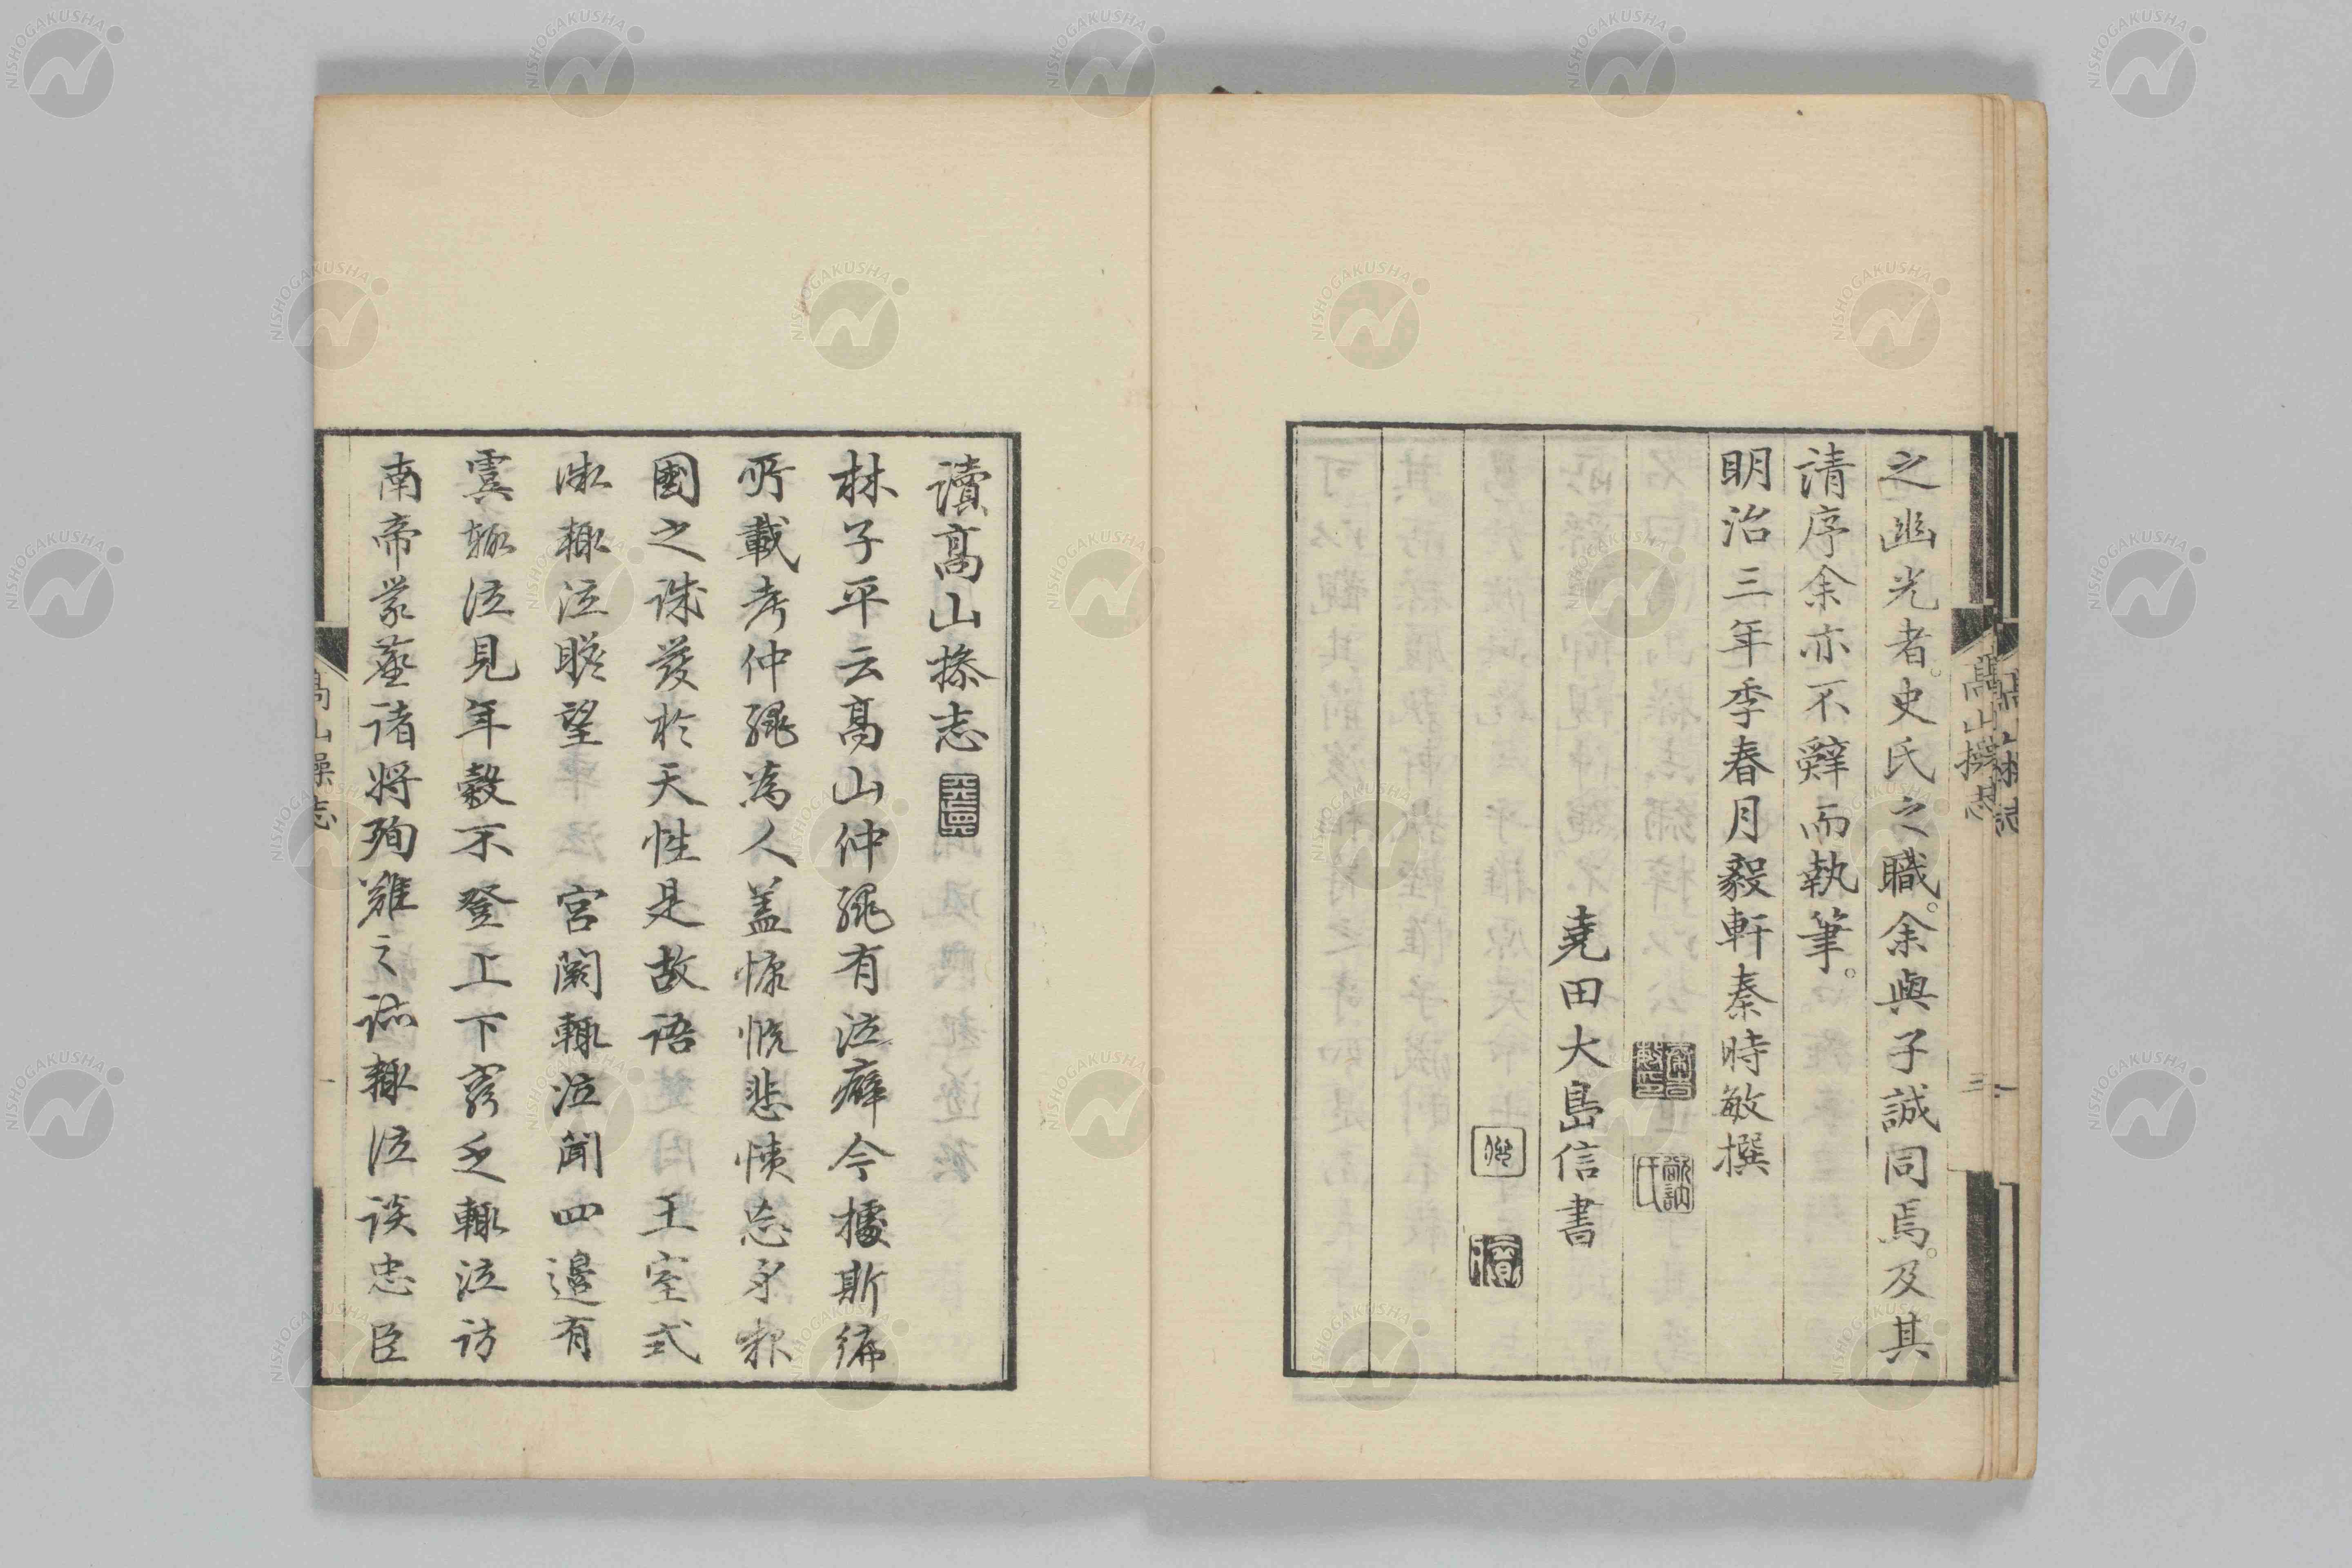 之幽光者。史氏之職。余與子誠同焉。及其
請序余亦不辭而執筆。
明治三年季春月毅軒秦時敏撰
堯田大島信書
讀高山操志
林子平云高山仲繩有泣癖今據斯編
所載考仲繩為人蓋慷慨悲憤忘身報
國之誠發於天性是故語王室式
微輒泣瞻望宮闕輒泣聞四邊有
虞輒泣見年穀不登上下窮乏輒泣訪
南帝蒙塵諸將殉難之跡輒泣談忠臣
高山操志
NISHOGAKUSHA